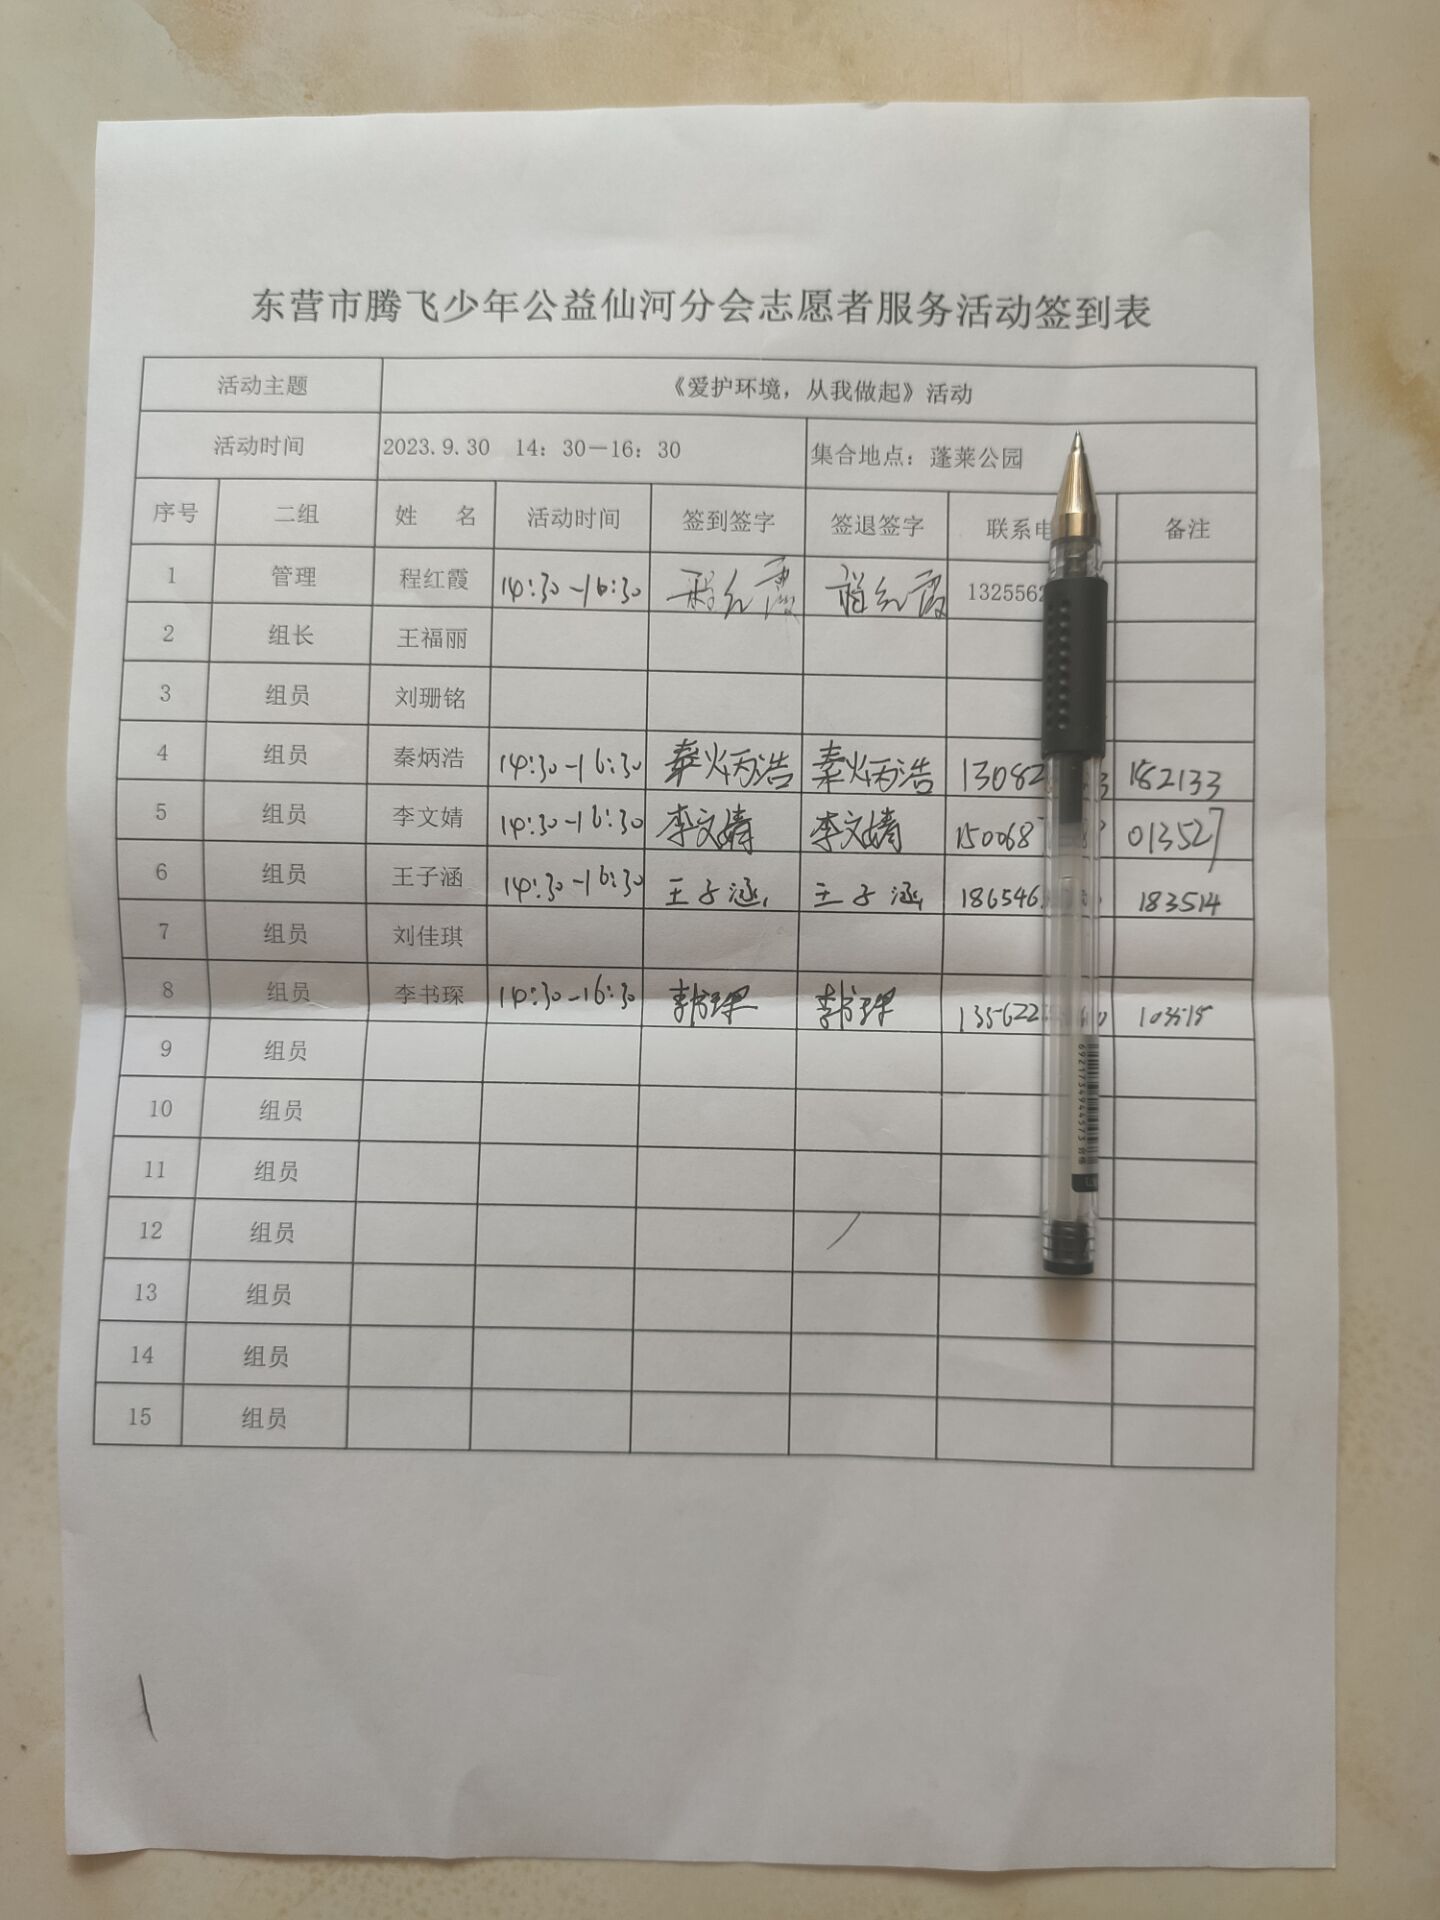 东营市腾飞少年公益仙河分会志愿者服务活动签到表
活动主题 《爱护环境，从我做起》活动
活动时间 2023.9.30 14：30－16：30 集合地点：蓬莱公园
序号 二组 姓 名 活动时间 签到签字 签退签字 联系电 备注
1 管理 程红霞 14:30-16:30 程红霞 程红霞 1325562
2 组长 王福丽
3 组员 刘珊铭
4 组员 秦炳浩 14:30-16:30 秦炳浩 秦炳浩 13082 3 182133
5 组员 李文婧 14:30-16:30 李文婧 李文婧 150068 013527
6 组员 王子涵 14:30-16:30 王子涵 王子涵 186546 183514
7 组员 刘佳琪
8 组员 李书琛 14:30-16:30 李书琛 李书琛 135622 0 103515
9 组员
10 组员
11 组员
12 组员
13 组员
14 组员
15 组员
6921734944573